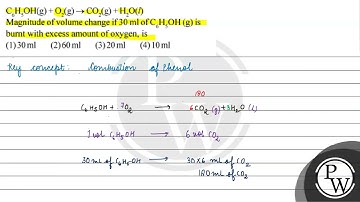 C₆H₅OH(g) + O₂(g) → CO₂(g) + H₂O(l)
Magnitude of volume change if 30 ml of C₆H₅OH (g) is
burnt with excess amount of oxygen, is
(1) 30 ml (2) 60 ml (3) 20 ml (4) 10 ml
Key concept: Combustion of Phenol
180
C₆H₅OH + 7O₂ → 6CO₂(g) + 3H₂O (l)
1 mol C₆H₅OH → 6 mol CO₂
30 ml of C₆H₅-OH → 30×6 ml of CO₂
180 ml of CO₂
PW